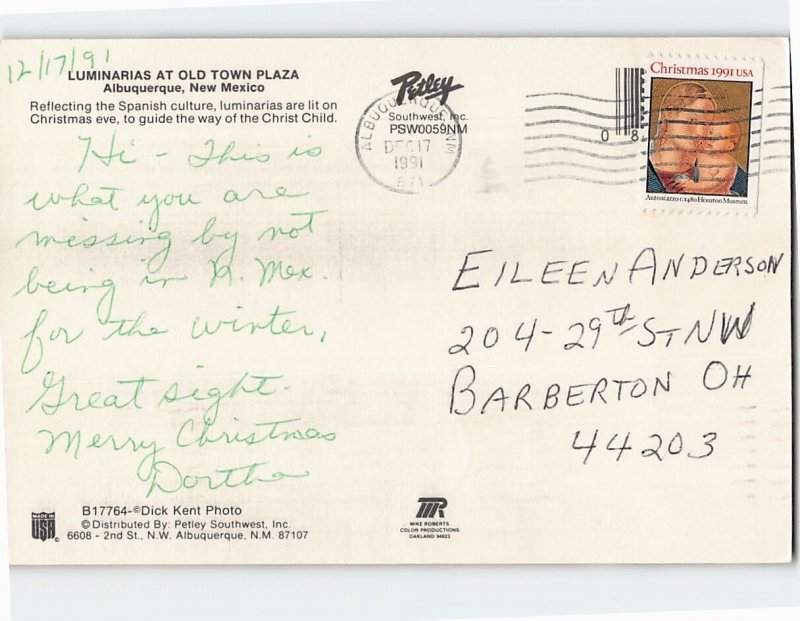 12/17/91
LUMINARIAS AT OLD TOWN PLAZA
Albuquerque, New Mexico
Reflecting the Spanish culture, luminarias are lit on
Christmas eve, to guide the way of the Christ Child.
Hi - This is
what you are
missing by not
being in N. Mex.
for the winter,
Great sight.
Merry Christmas
Dortha
B17764-©Dick Kent Photo
© Distributed By: Petley Southwest, Inc.
6608 - 2nd St., N.W. Albuquerque, N.M. 87107
MADE IN
USA
Petley
Southwest, Inc.
PSW0059NM
ALBUQUERQUE NM
DEC 17
1991
Christmas 1991 USA
Antoniazzo c.1480 Houston Museum
0 8
EILEEN ANDERSON
204-29th ST NW
BARBERTON OH
44203
MR
MIKE ROBERTS
COLOR PRODUCTIONS
OAKLAND 94623